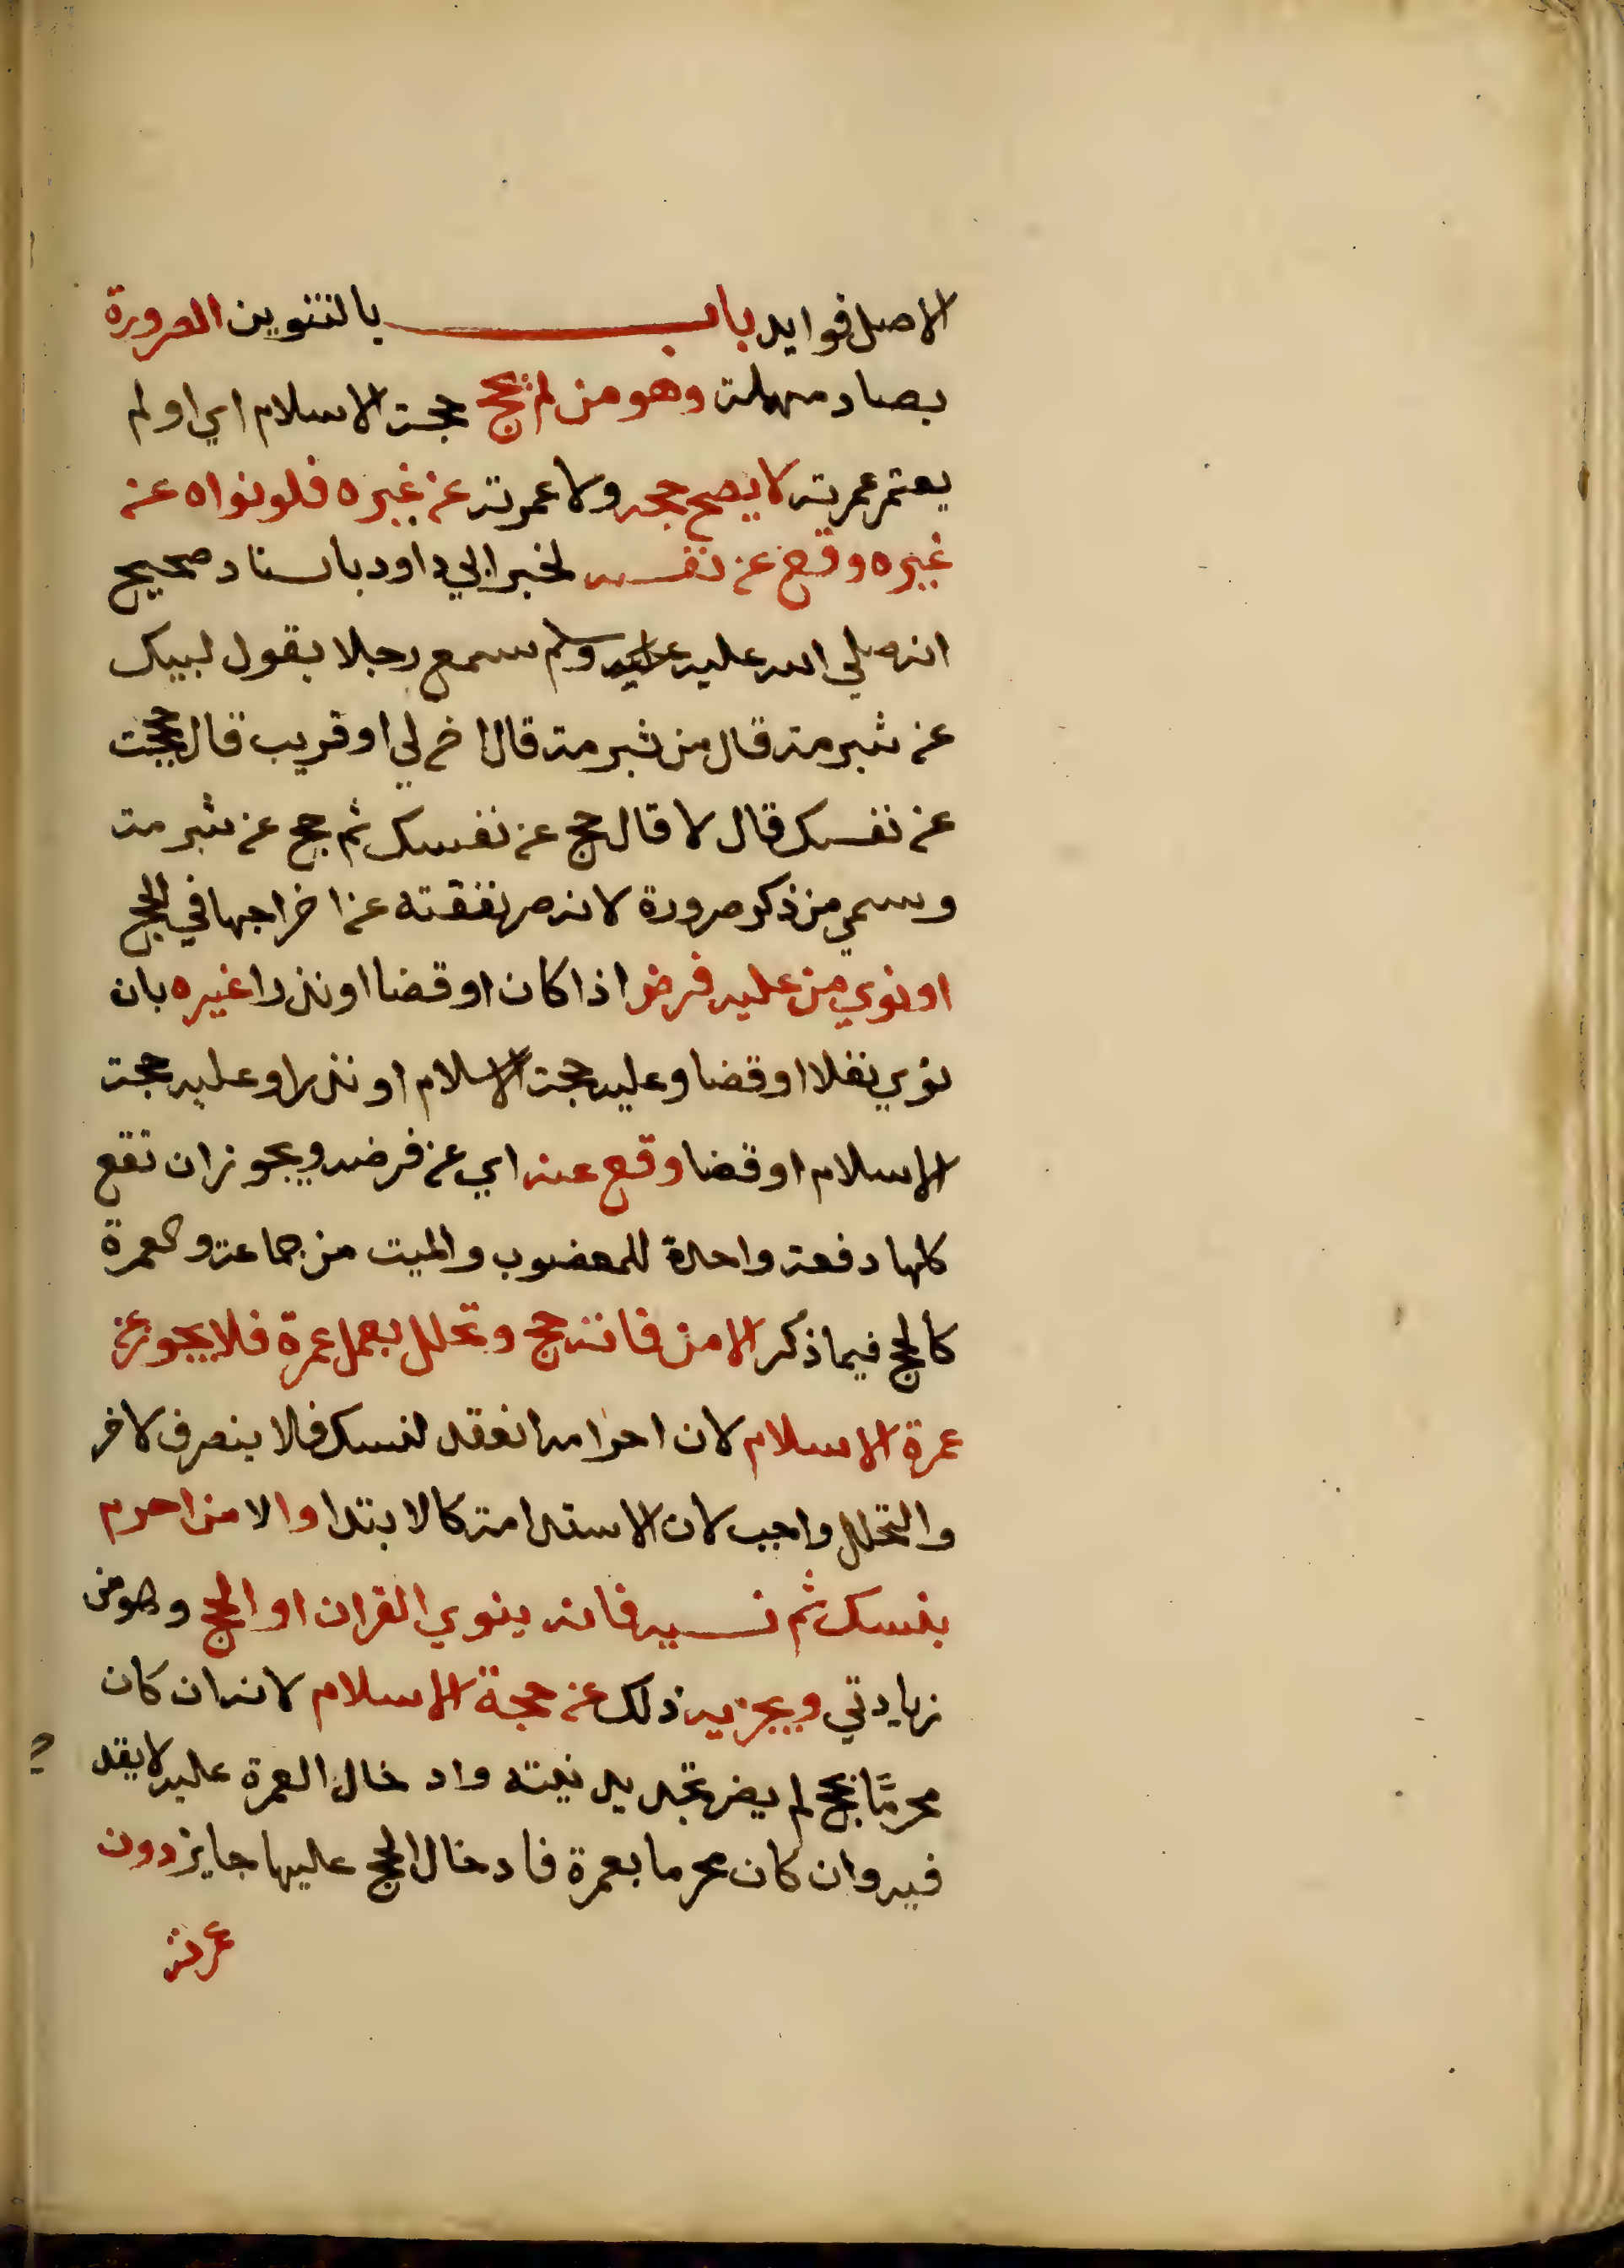 الاصل فوايد باب بالتنوين الصرورة
بصاد مهملة وهو من لم يحج حجة الاسلام اي او لم
يعتمر عمرته لا يصح حجه ولا عمرته عن غيره فلو نواه عن
غيره وقع عن نفسه لخبر ابي داود باسناد صحيح
انه صلي الله عليه وسلم سمع رجلا يقول لبيك
عن شبرمة قال من شبرمة قال اخ لي او قريب قال حججت
عن نفسك قال لا قال حج عن نفسك ثم حج عن شبرمة
وسمي من ذكر صرورة لانه صر نفقته عن اخراجها في الحج
او نوي من عليه فرض اذا كان او قضا او نذرا غيره بان
نوي نفلا او قضا وعليه حجة الاسلام او نذرا وعليه حجة
الاسلام او قضا وقع عنه اي عن فرضه ويجوز ان تقع
كلها دفعة واحدة للمعضوب والميت من جماعة والعمرة
كالحج فيما ذكر الا من فاته حج وتحلل بعمل عمرة فلا يجوز عن
عمرة الاسلام لان احرامه انعقد لنسك فلا ينصرف لاخر
والتحلل واجب لان الاستدامة كالابتدا والا من احرم
بنسك ثم نسيه فانه ينوي القران او الحج وهو من
زيادتي ويجزيه ذلك عن حجة الاسلام لانه ان كان
محرمًا بحج لم يضر تجديد نيته وادخال العمرة عليه لا يقدح
فيه وان كان محرما بعمرة فادخال الحج عليها جايز دون
عمرته